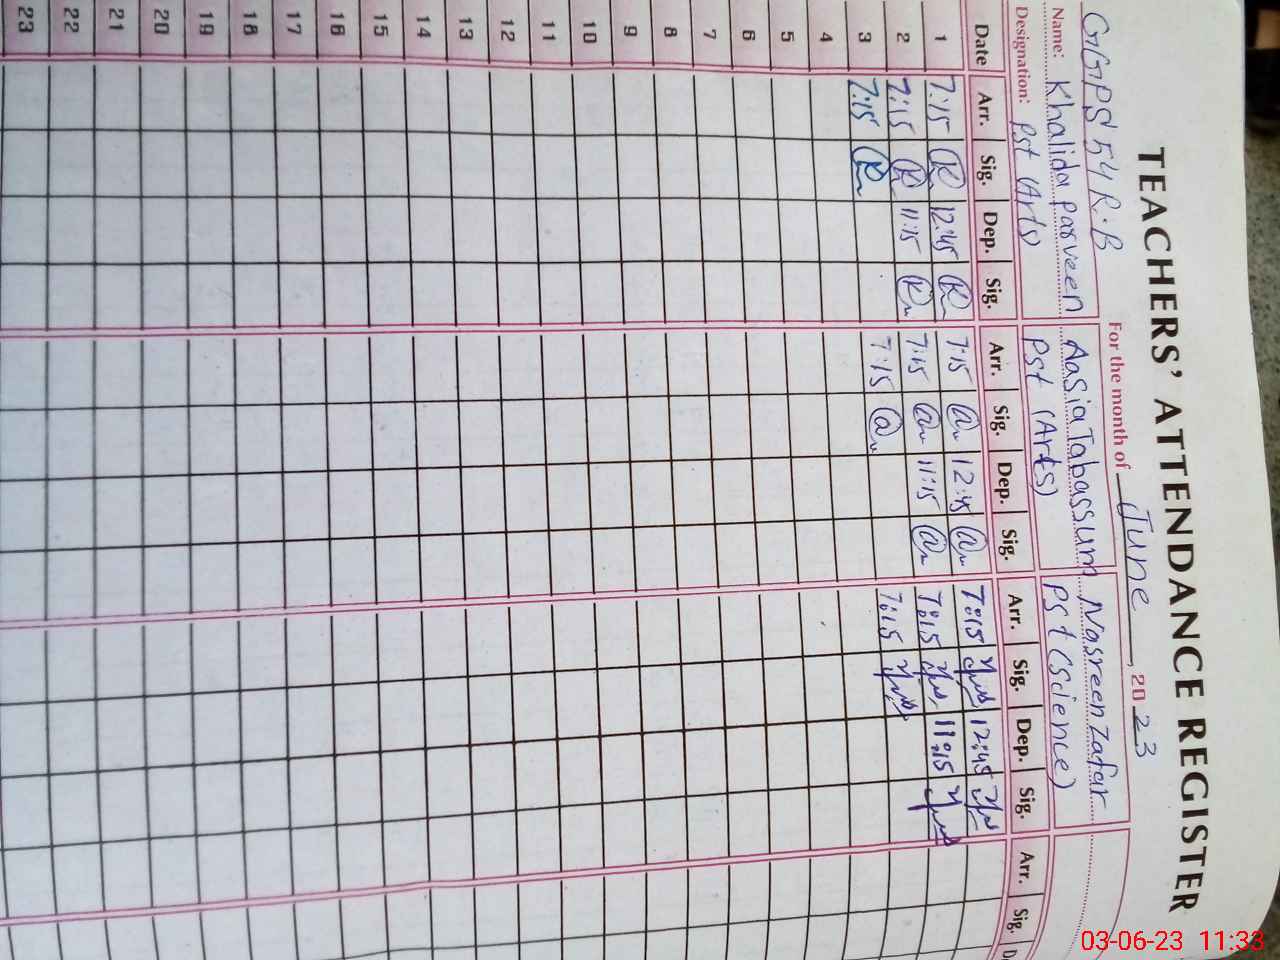 TEACHERS' ATTENDANCE REGISTER
GGPS 54 R.B For the month of June, 2023
Name: Khalida Parveen Aasia Tabassum Nasreen Zafar
Designation: Pst (Arts) Pst (Arts) Pst (Science)
Date Arr. Sig. Dep. Sig. Arr. Sig. Dep. Sig. Arr. Sig. Dep. Sig. Arr. Sig.
1 7:15 12:45 7:15 12:45 7:15 12:45
2 7:15 11:15 7:15 11:15 7:15 11:15
3 7:15 7:15 7:15
4
5
6
7
8
9
10
11
12
13
14
15
16
17
18
19
20
21
22
23
03-06-23 11:33